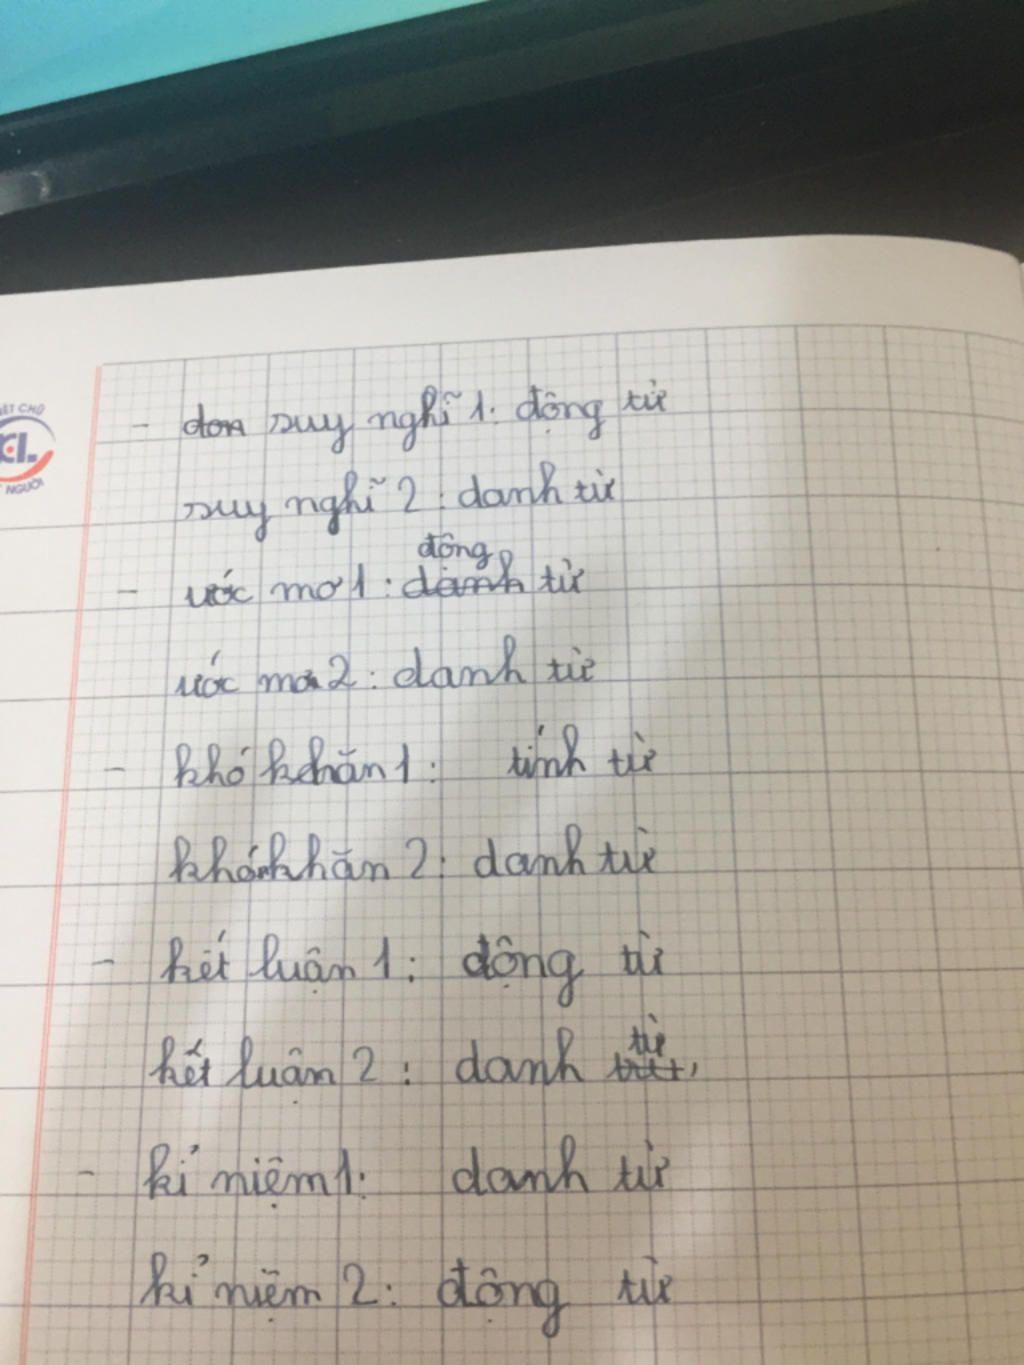 ẾT CHỮ
CL
NGƯỜI
- don suy nghĩ 1: động từ
suy nghĩ 2: danh từ
động
- ước mơ 1: danh từ
ước mơ 2: danh từ
- khó khăn 1: tính từ
khó khăn 2: danh từ
- kết luận 1: động từ
từ
kết luận 2: danh
- kỉ niệm 1: danh từ
kỉ niệm 2: động từ